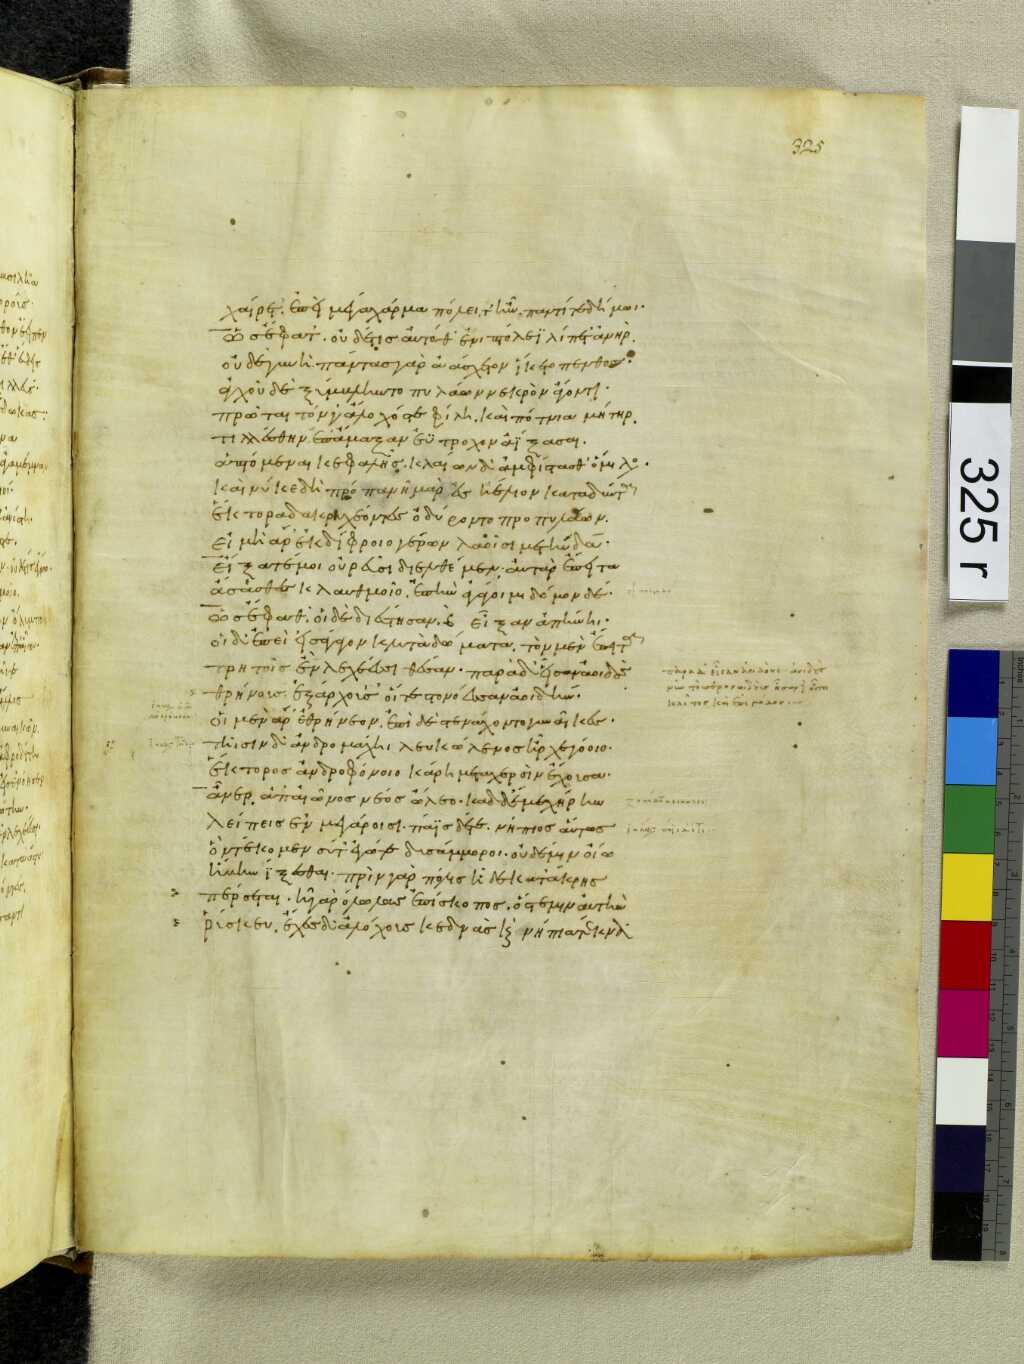 325
χαίρετ', ἐπεὶ μέγα χάρμα πόλει τ' ἦν παντί τε δήμωι·
ὣς ἔφατ'· οὐδέ τις αὐτόθ' ἐνὶ πτόλεϊ λίπετ' ἀνὴρ.
οὐδὲ γυνή· πάντας γὰρ ἀάσχετον ἵκετο πένθος·
ἀγχοῦ δὲ ξύμβληντο πυλάων νεκρὸν ἄγοντι·
πρῶται τόν γ' ἄλοχός τε φίλη, καὶ πότνια μήτηρ.
τιλλέσθην ἐπ' ἄμαξαν ἐΰτροχον ἀΐξασαι.
ἁπτόμεναι κεφαλῆς. κλαίων δ' ἀμφίσταθ' ὅμιλος·
καί νύ κε δὴ πρόπαν ἦμαρ ἐς ἠέλιον καταδύντα
ἕκτορα δακρυχέοντες ὀδύροντο πρὸ πυλάων.
εἰ μὴ ἄρ' ἐκ δίφροιο γέρων λαοῖσι μετηύδα·
εἴξατέ μοι οὐρεῦσι διελθέμεν· αὐτὰρ ἔπειτα
ἄσεσθε κλαυθμοῖο, ἐπὴν ἀγάγωμι δόμον δέ·
ὣς ἔφαθ'· οἱ δὲ διέστησαν, καὶ εἶξαν ἀπήνηι·
οἱ δ' ἐπεὶ εἰσάγαγον κλυτὰ δώματα, τὸν μὲν ἔπειτα
τρητοῖς ἐν λεχέεσσι θέσαν· παρὰ δ' εἷσαν ἀοιδοὺς
θρήνοις ἐξάρχους· οἵ τε στονόεσσαν ἀοιδὴν·
οἱ μὲν ἄρ' ἐθρήνεον, ἐπὶ δὲ στενάχοντο γυναῖκες·
τῆισιν δ' ἀνδρομάχη λευκώλενος ἦρχε γόοιο·
ἕκτορος ἀνδροφόνοιο κάρη μετὰ χερσὶν ἔχουσα·
ἆνερ, ἀπ' αἰῶνος νέος ὤλεο· καδ δέ με χήρην
λείπεις ἐν μεγάροισι· πάϊς δ' ἔτι νήπιος αὔτως
ὃν τέκομεν σύ τ' ἐγώ τε δυσάμμοροι· οὐδέ μιν οἴω
ἥβην ἵξεσθαι· πρὶν γὰρ πόλις ἥδε κατάκρης
πέρσεται· ἦ γὰρ ὄλωλας ἐπίσκοπος, ὅς τέ μιν αὐτὴν
ῥύσκευ, ἔχες δ' ἀλόχους κεδνὰς καὶ νήπια τέκνα·
325 r